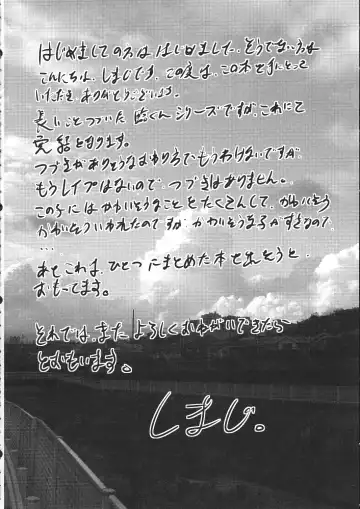 はじめましての方ははじめました、そうでない方は
こんにちは、しまじです。この度は、この本を手にとって
いただき ありがとうございます。
長いことつづいた 臨くんシリーズですが、これにて
完結となります。
つづきがありそうなおわり方でもうしわけないですが
もうレイプはないので、つづきはありません。
この子にはかわいそうなことをたくさんして、かわいそう
かわいそういわれたのですが、かわいそうな子がすきなので、
…
あとこれは、ひとつにまとめた本を出そうと
おもってます。
それでは、またよろしくおねがいできたら
とおもいます。
しまじ。